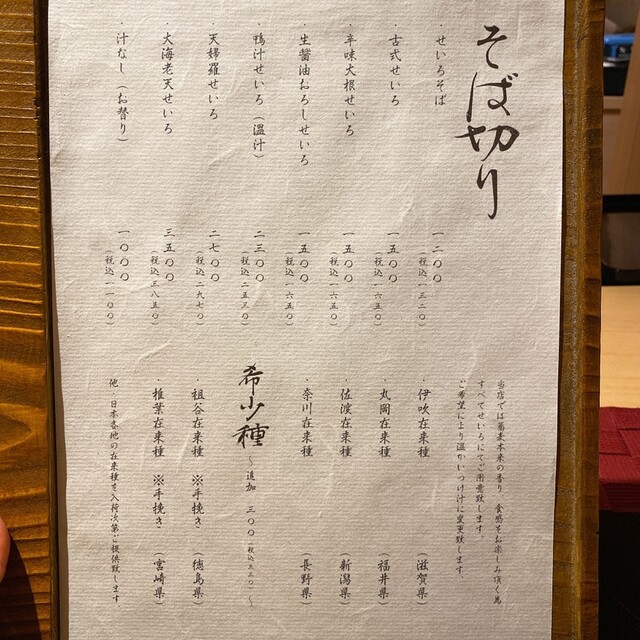 そば切り
・せいろそば 一二〇〇 (税込一三二〇)
・古式せいろ 一五〇〇 (税込一六五〇)
・辛味大根せいろ 一五〇〇 (税込一六五〇)
・生醤油おろしせいろ 一五〇〇 (税込一六五〇)
・鴨汁せいろ(温汁) 二三〇〇 (税込二五三〇)
・天婦羅せいろ 二七〇〇 (税込二九七〇)
大海老天せいろ 三五〇〇 (税込三八五〇)
・汁なし(お替り) 一〇〇〇 (税込一一〇〇)
当店では蕎麦本来の香り、食感をお楽しみ頂く為
すべてせいろにてご用意致します。
ご希望により温かいつけ汁に変更致します。
・伊吹在来種 (滋賀県)
・丸岡在来種 (福井県)
・佐渡在来種 (新潟県)
・奈川在来種 (長野県)
希少種 〜追加 三〇〇(税込三三〇)〜
・祖谷在来種 ※手挽き (徳島県)
・椎葉在来種 ※手挽き (宮崎県)
他、日本各地の在来種を入荷次第ご提供致します